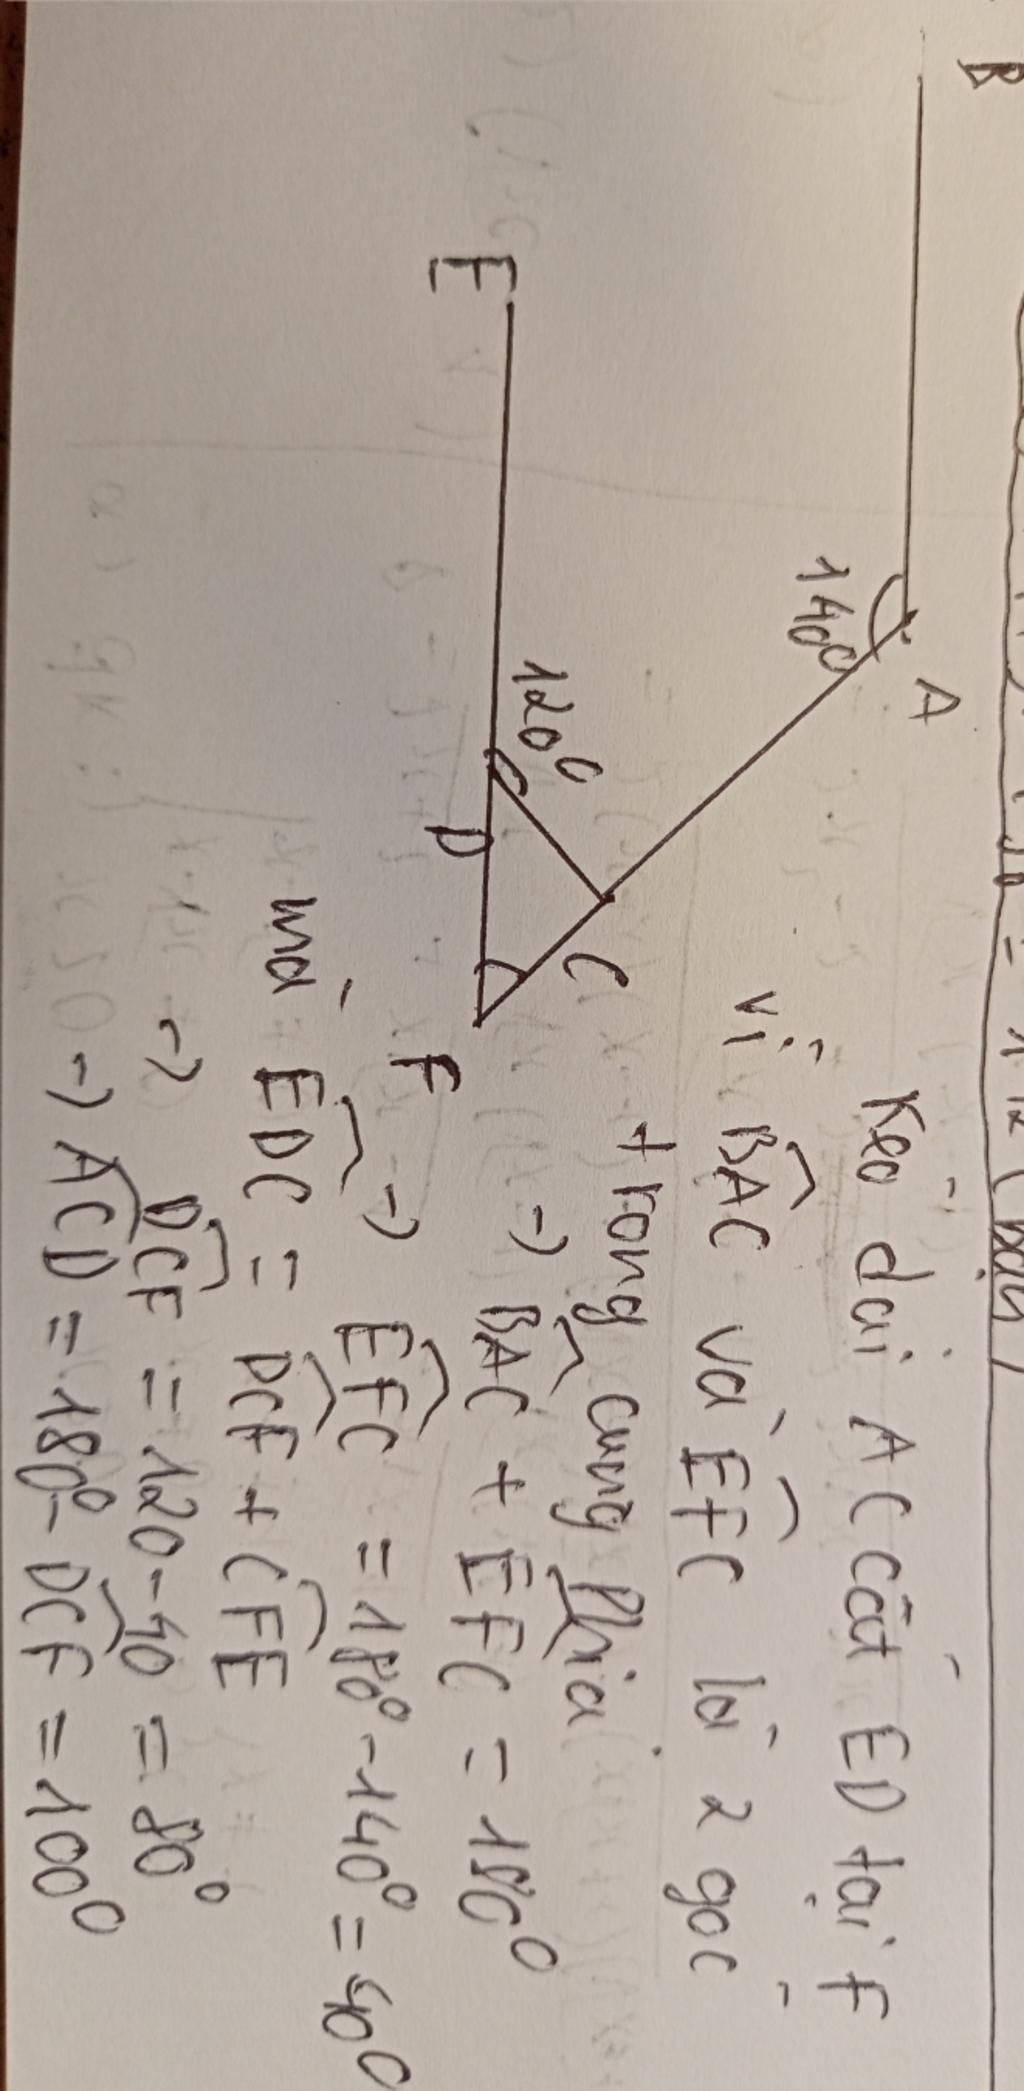 B
A
140°
E
120°
D
C
F
Kéo dài AC cắt ED tại F
Vì BAC và EFC là 2 góc
trong cùng phía
-> BAC + EFC = 180°
-> EFC = 180° - 140° = 40°
mà EDC = DCF + CFE
-> DCF = 120 - 40 = 80°
-> ACD = 180° - DCF = 100°